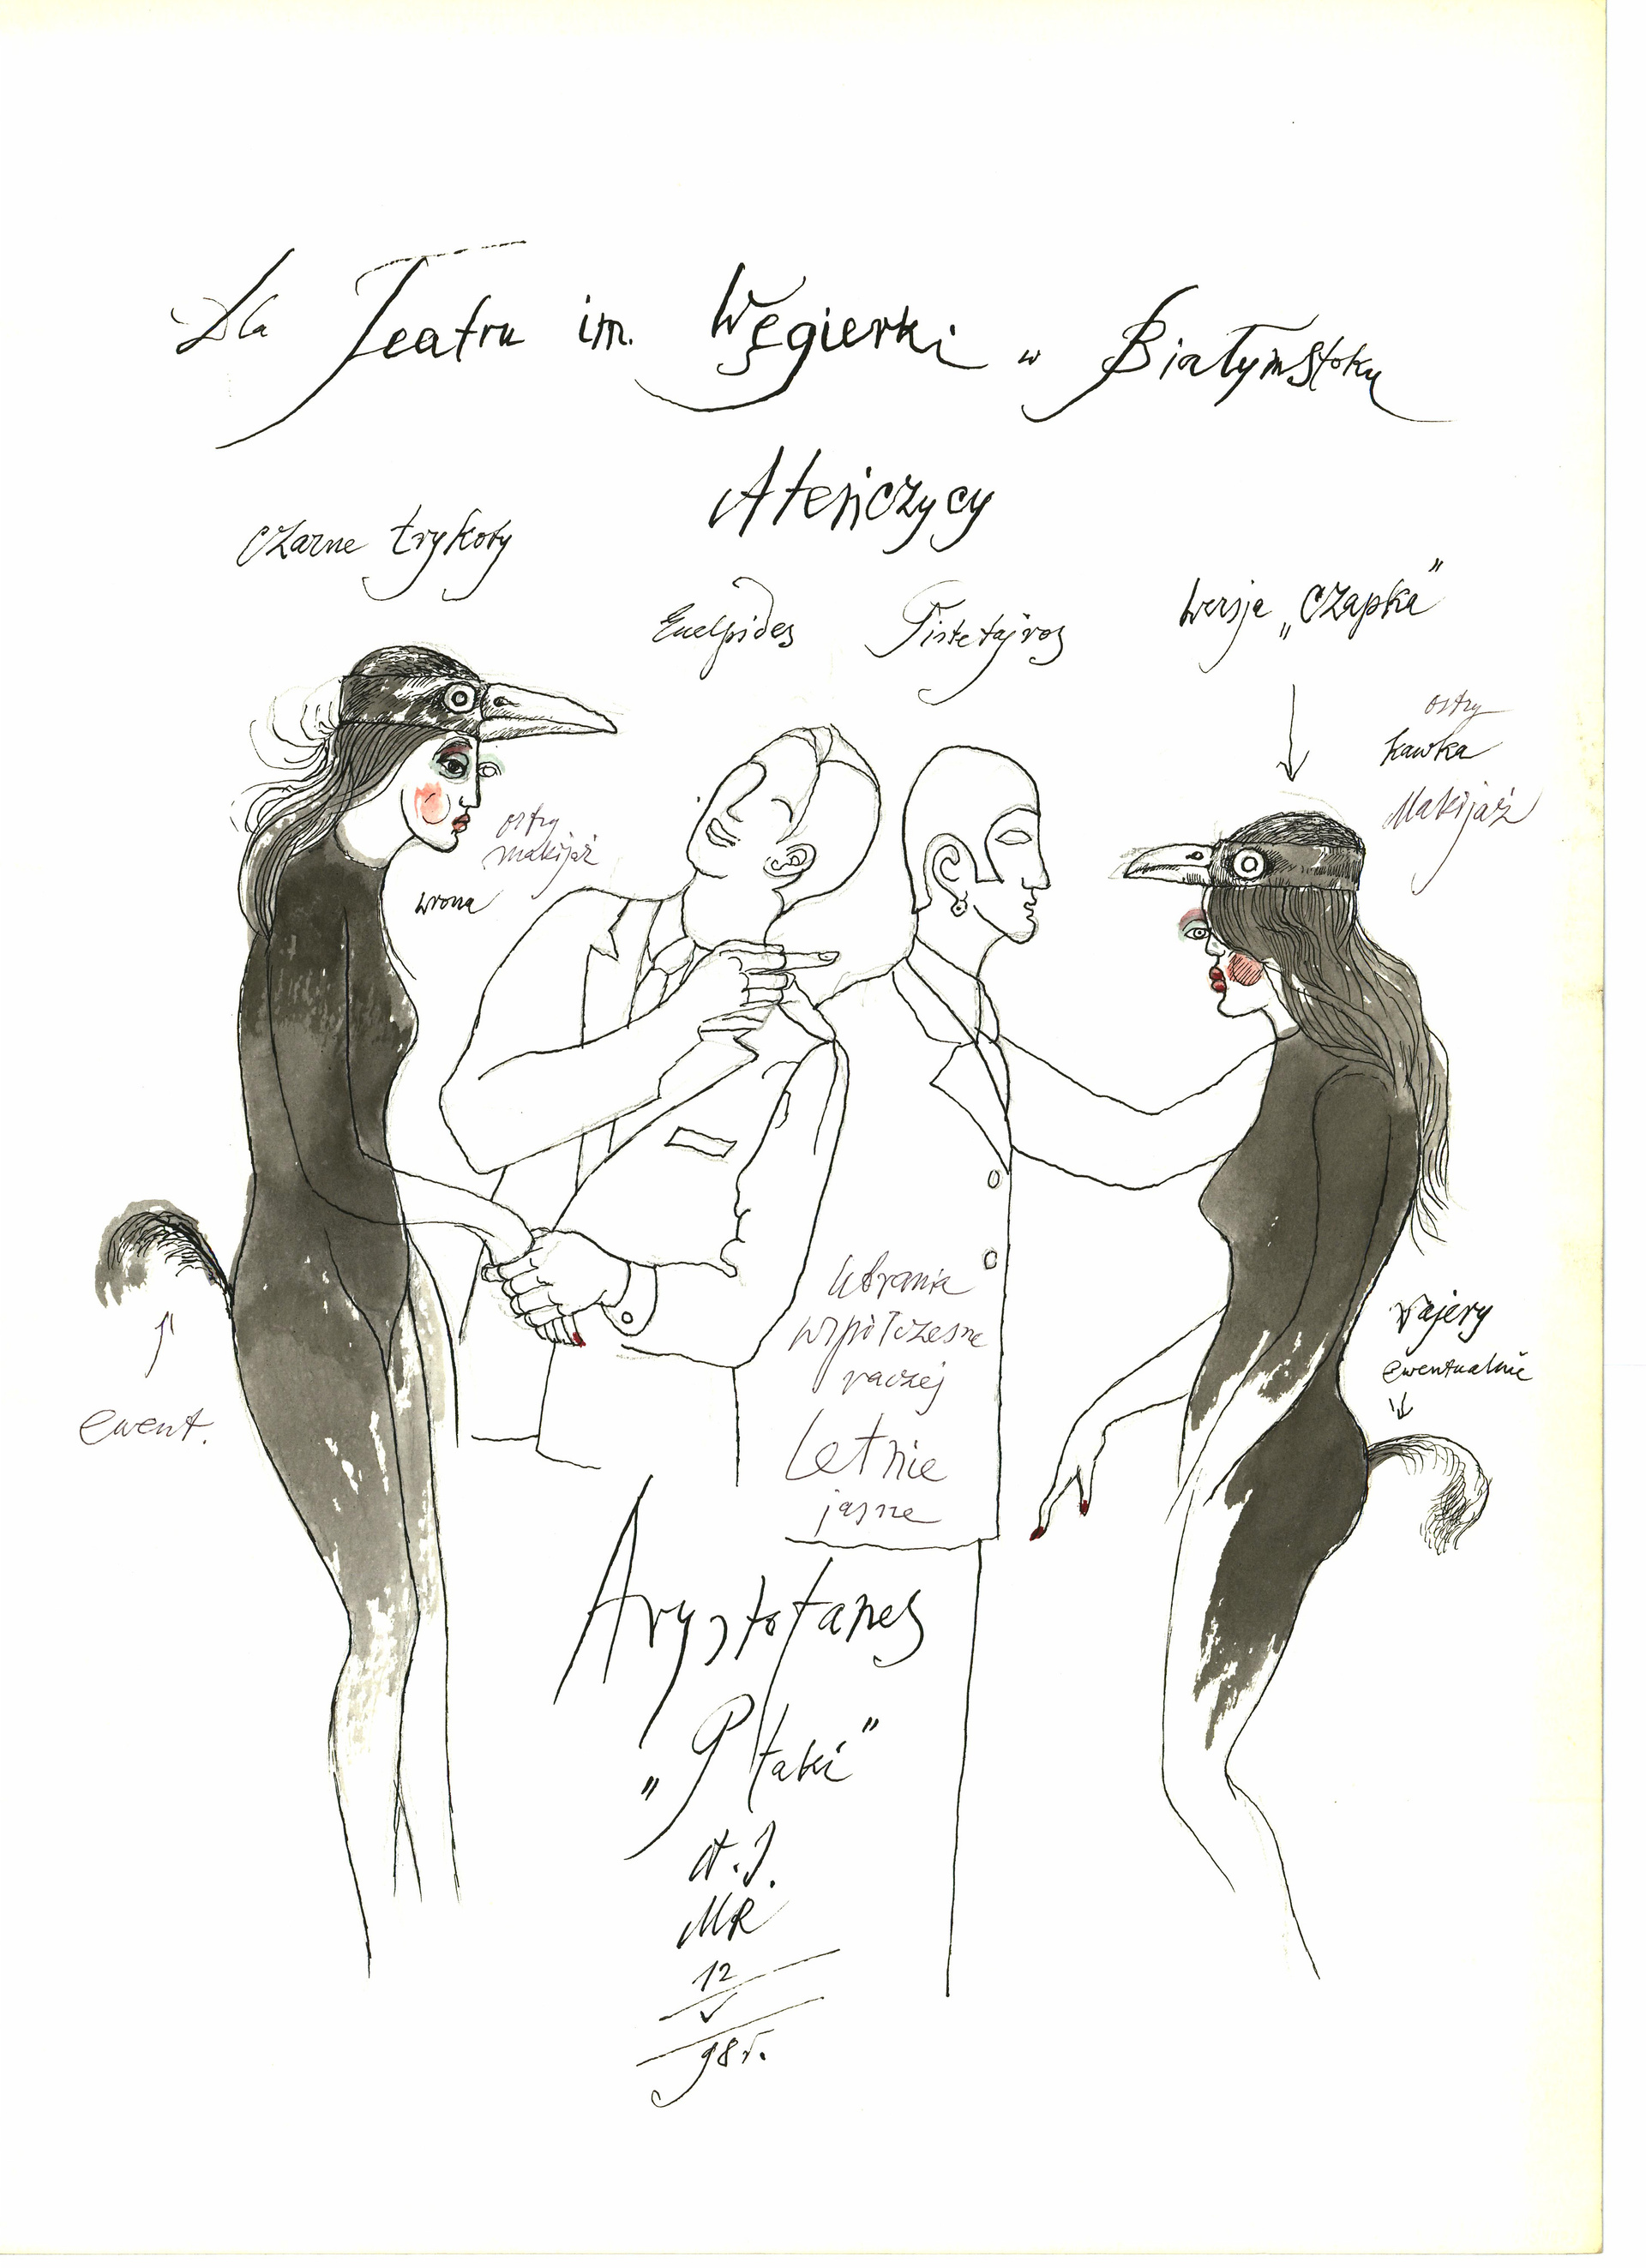 Dla Teatru im. Węgierki w Białymstoku
Ateńczycy
Czarne trykoty
Euelpides
Pistetajros
wersja „Czapka”
ostry
kawka
Makijaż
ostry
makijaż
wrona
ewent.
Ubrania
współczesne
raczej
Letnie
jasne
ewentualnie
Arystofanes
„Ptaki”
A.J.
MR
12
V
98r.